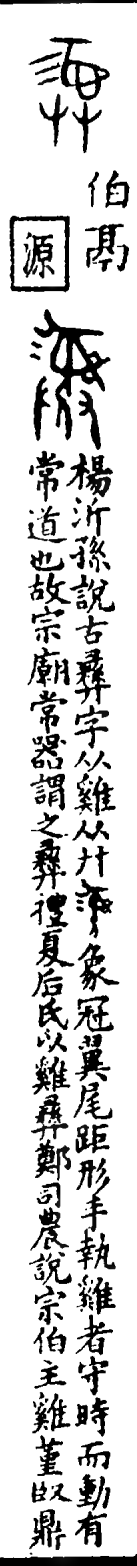 伯鬲
源
楊沂孫說古彝字从雞从廾象冠翼尾距形手執雞者守時而動有
常道也故宗廟常器謂之彝禮夏后氏以雞彝鄭司農說宗伯主雞堇臤鼎